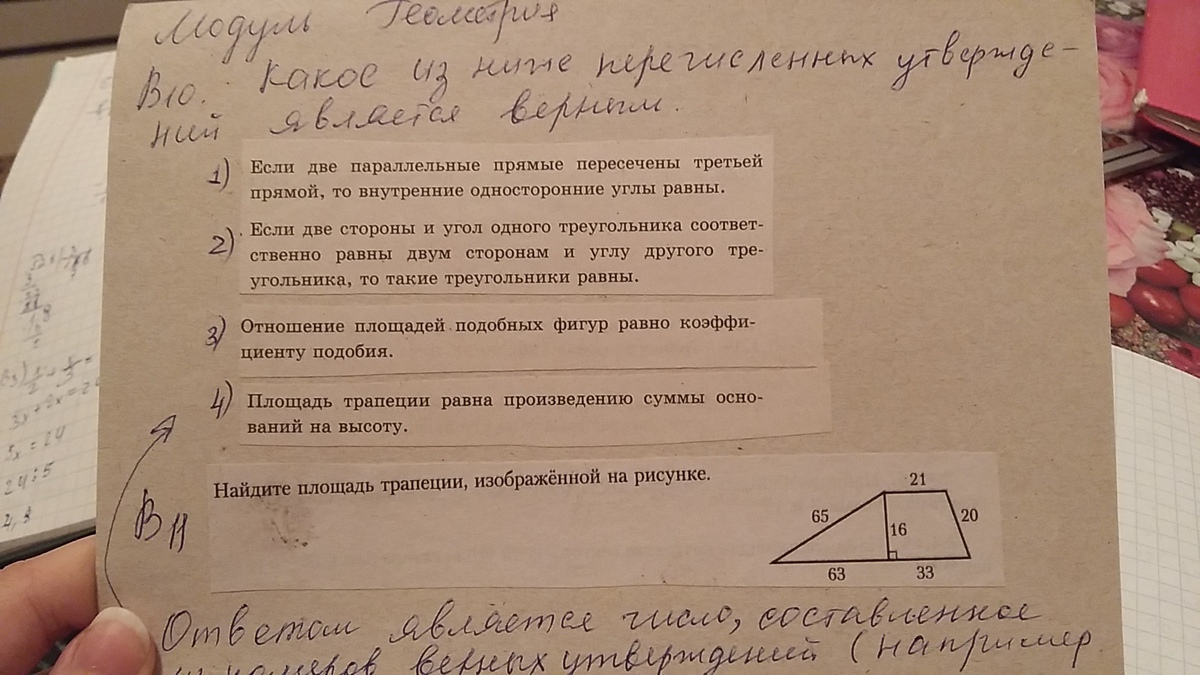 Модуль Геометрия
В10. Какое из ниже перечисленных утвержде-
ний является верным.
1) Если две параллельные прямые пересечены третьей
прямой, то внутренние односторонние углы равны.
2) Если две стороны и угол одного треугольника соответ-
ственно равны двум сторонам и углу другого тре-
угольника, то такие треугольники равны.
3) Отношение площадей подобных фигур равно коэффи-
циенту подобия.
4) Площадь трапеции равна произведению суммы осно-
ваний на высоту.
В11 Найдите площадь трапеции, изображённой на рисунке.
21
65
16
20
63
33
Ответом является число, составленное
из номеров верных утверждений (например
3x + 2x = 24
5x = 24
24:5
4,8